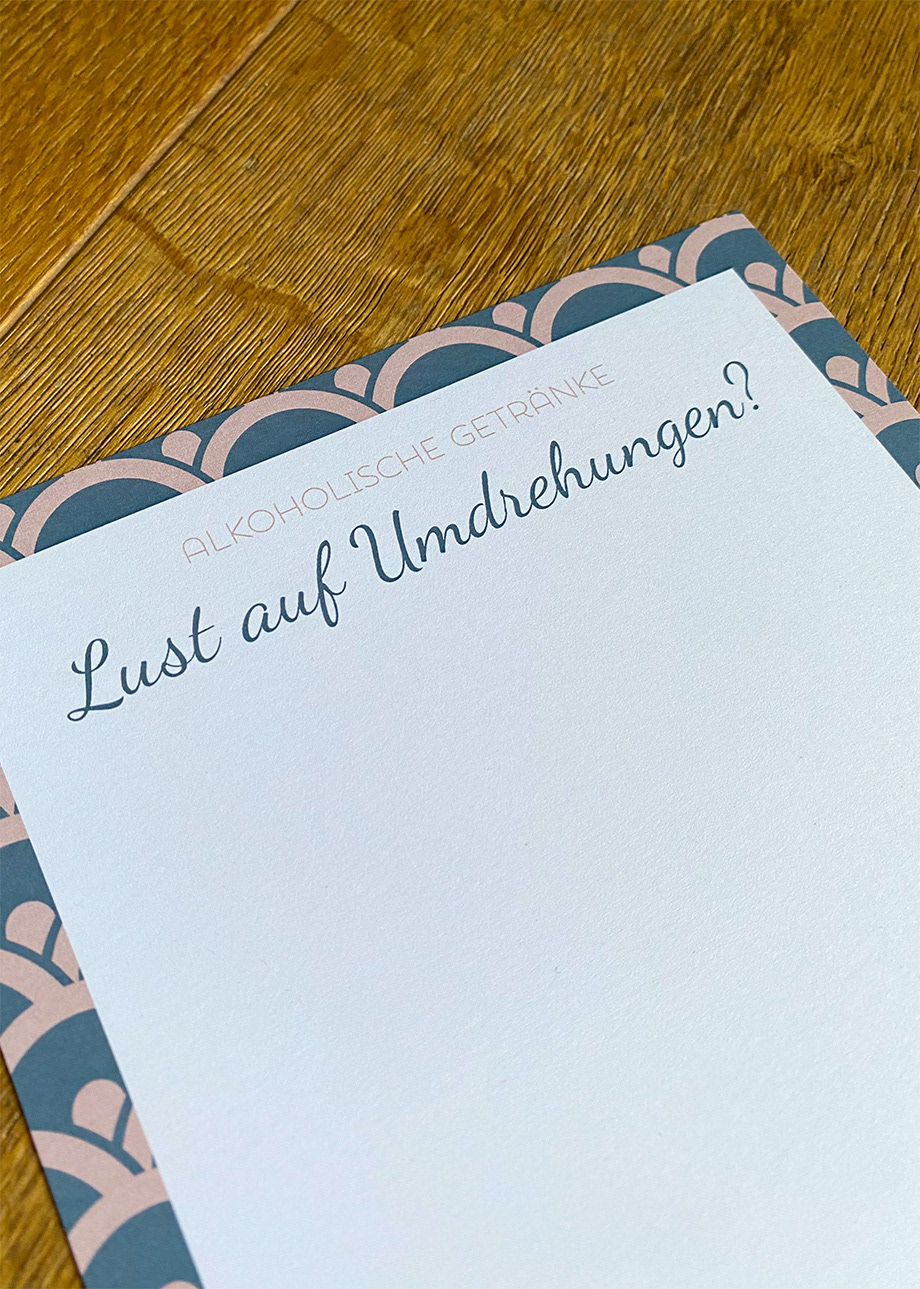 ALKOHOLISCHE GETRÄNKE
Lust auf Umdrehungen?